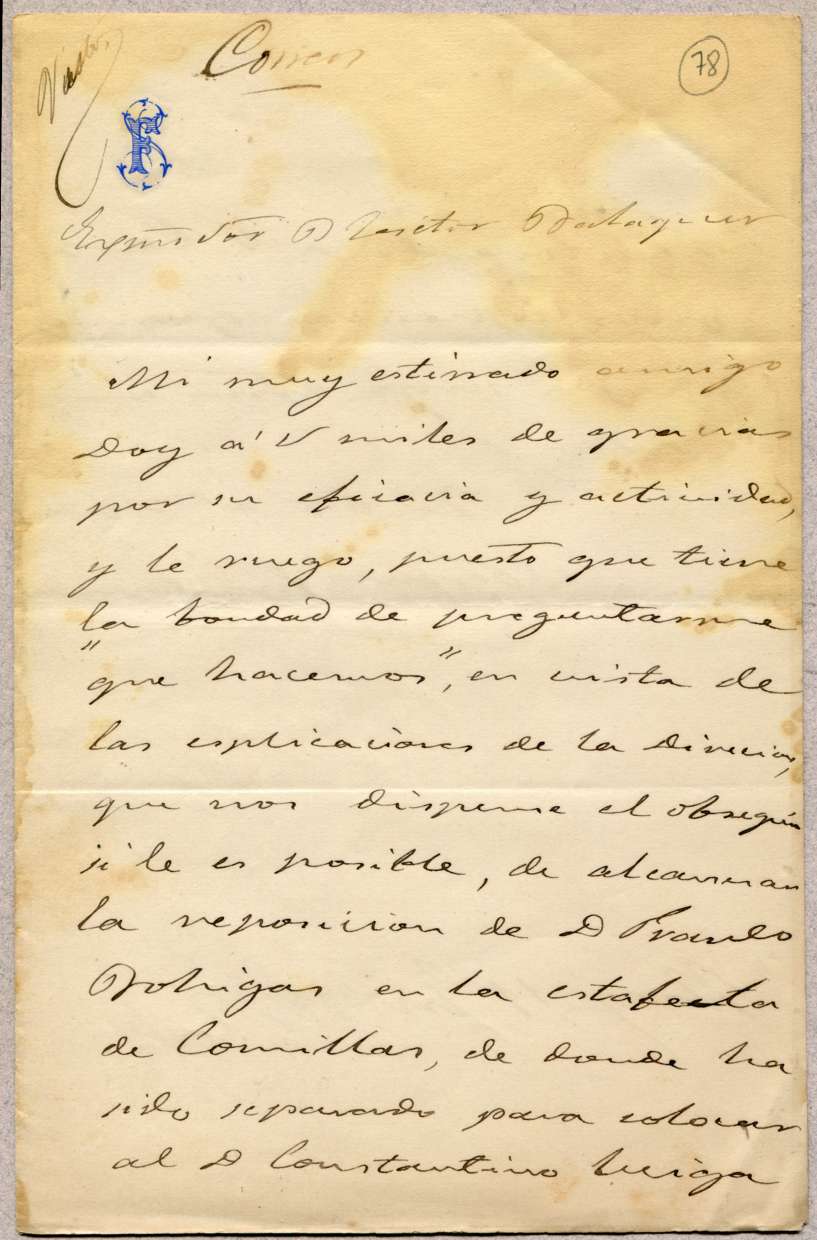 Visto,
Correos
78
FS
Exmo Sor D Victor Balaguer
Mi muy estimado amigo
Doy á V miles de gracias
por su eficacia y actividad,
y le ruego, puesto que tiene
la bondad de preguntarme
"que hacemos", en vista de
las esplicaciones de la Direccion,
que nos dispense el obsequio
si le es posible, de alcanzar
la reposicion de D
Bohigas en la estafeta
de Comillas, de donde ha
sido separado para colocar
al D Constantino